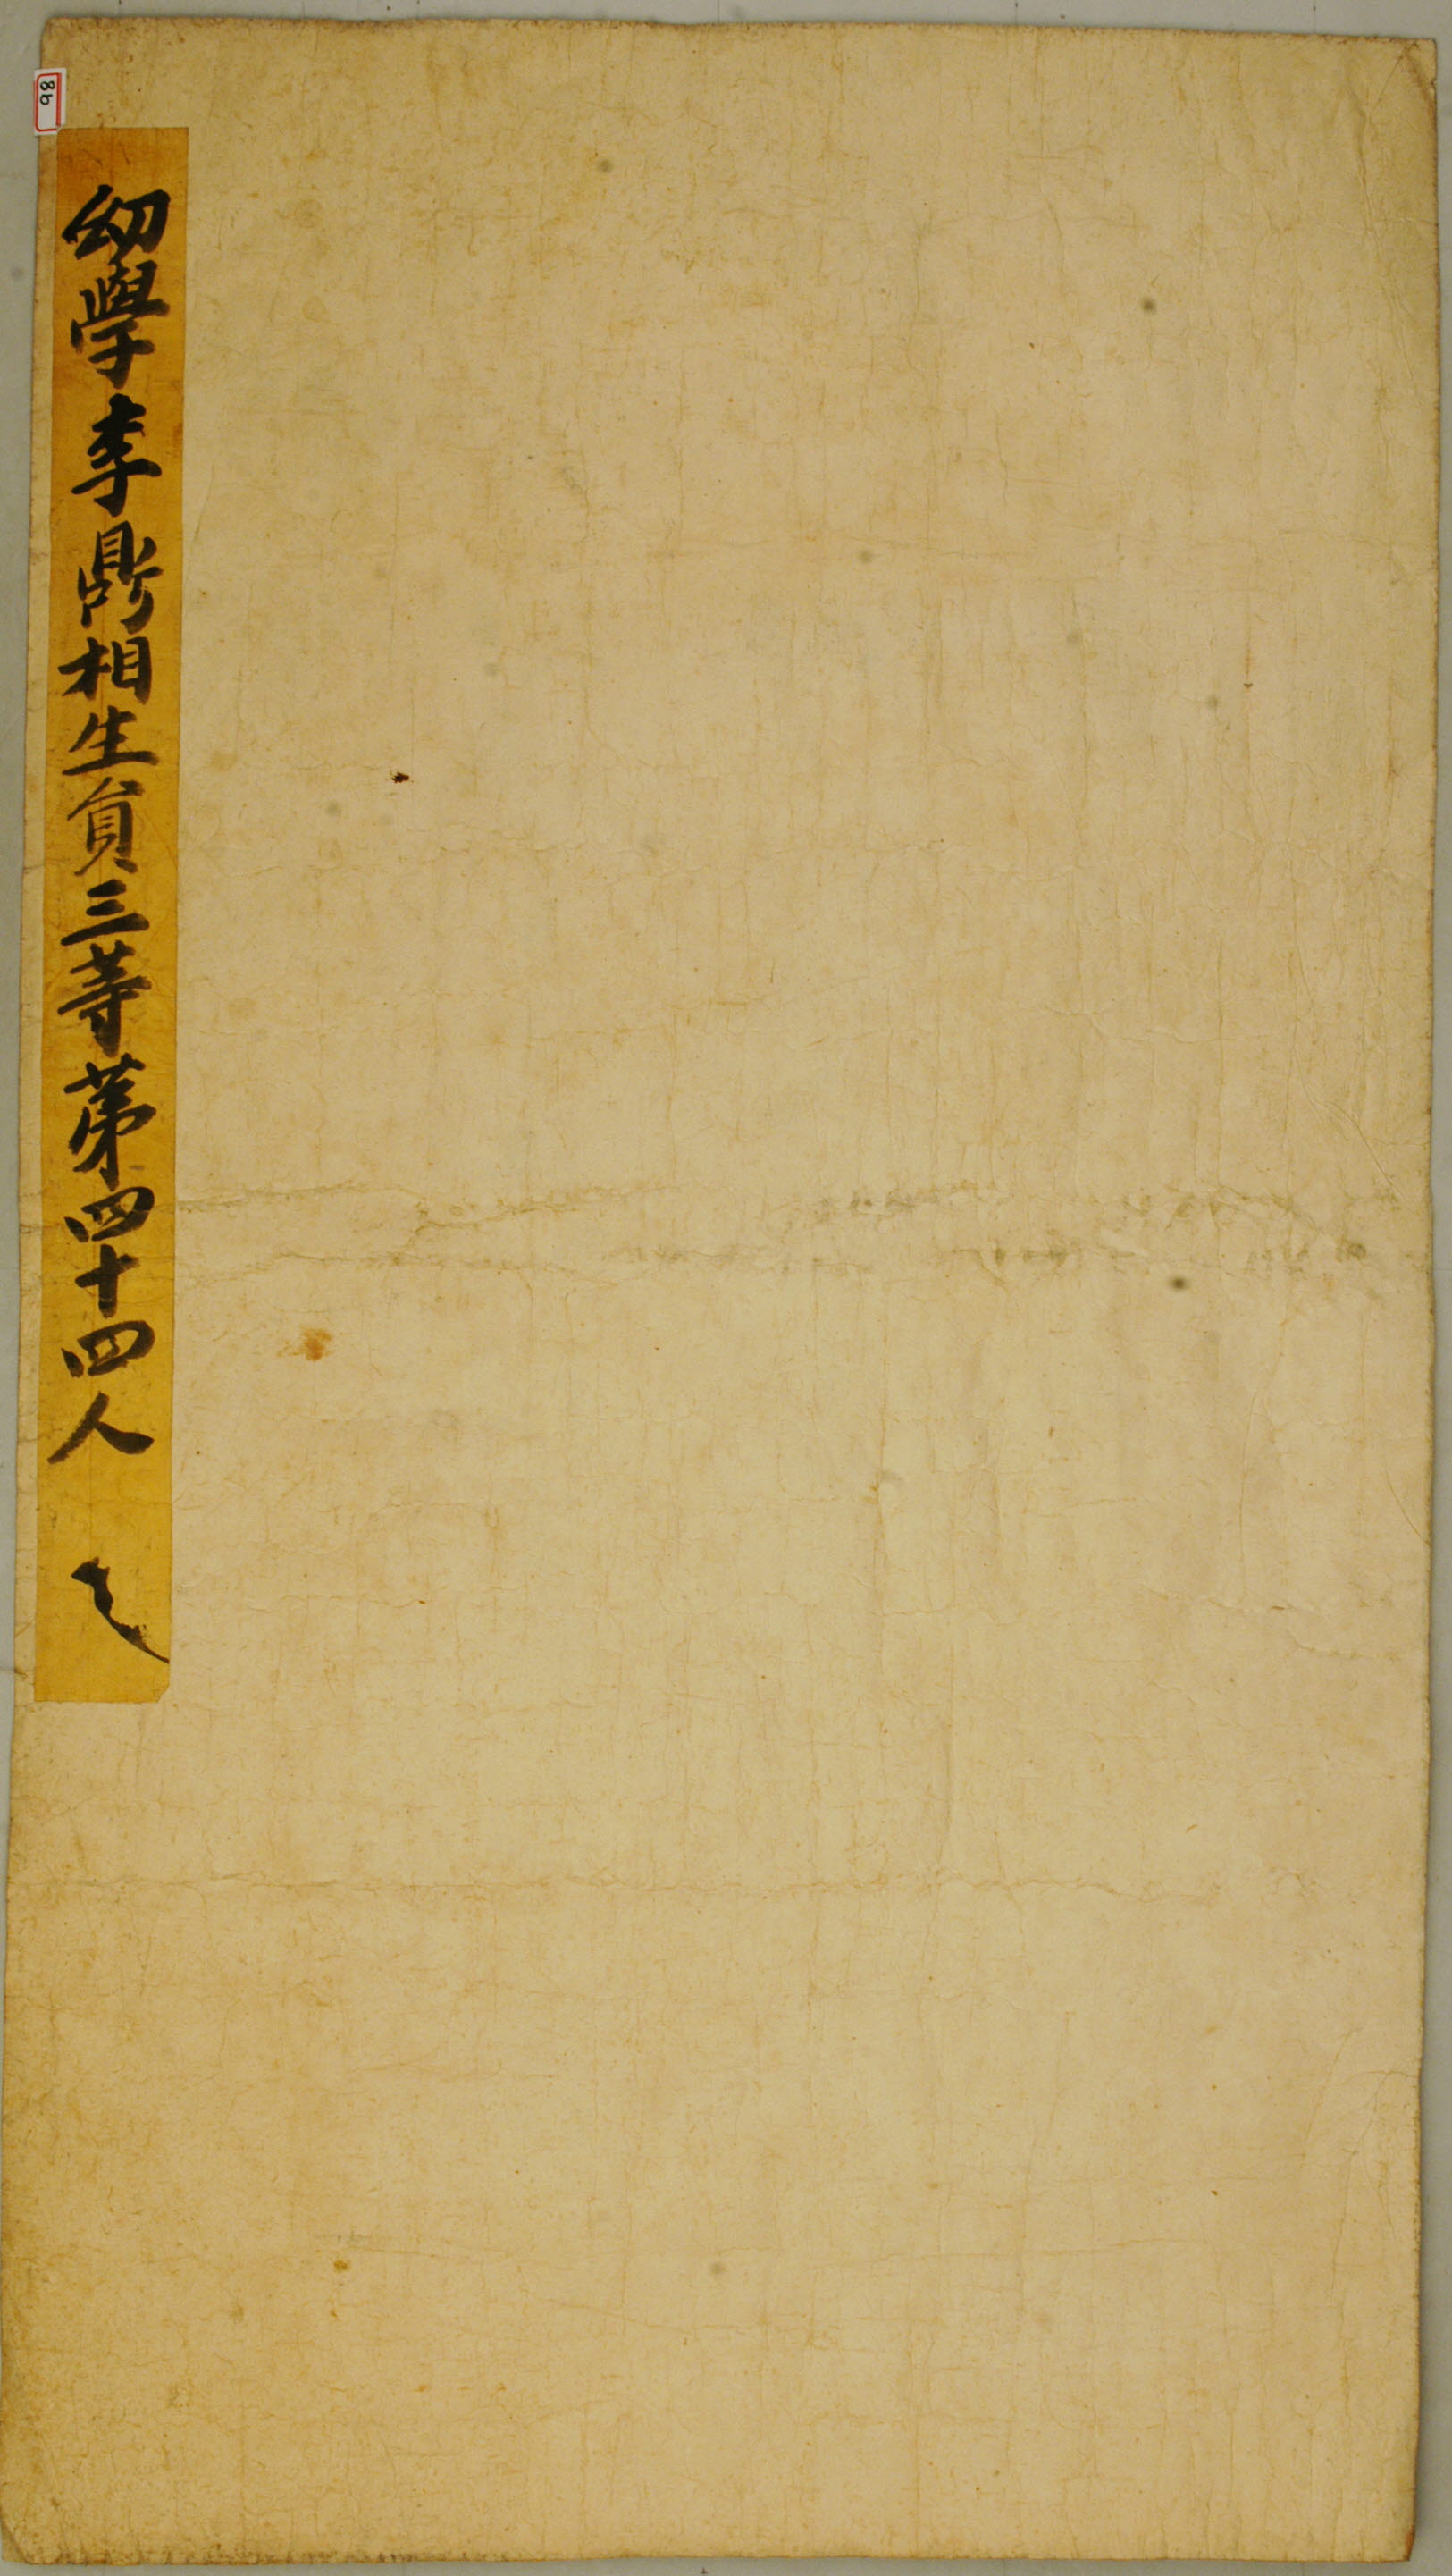 幼學李鼎相生員三等第四十四人